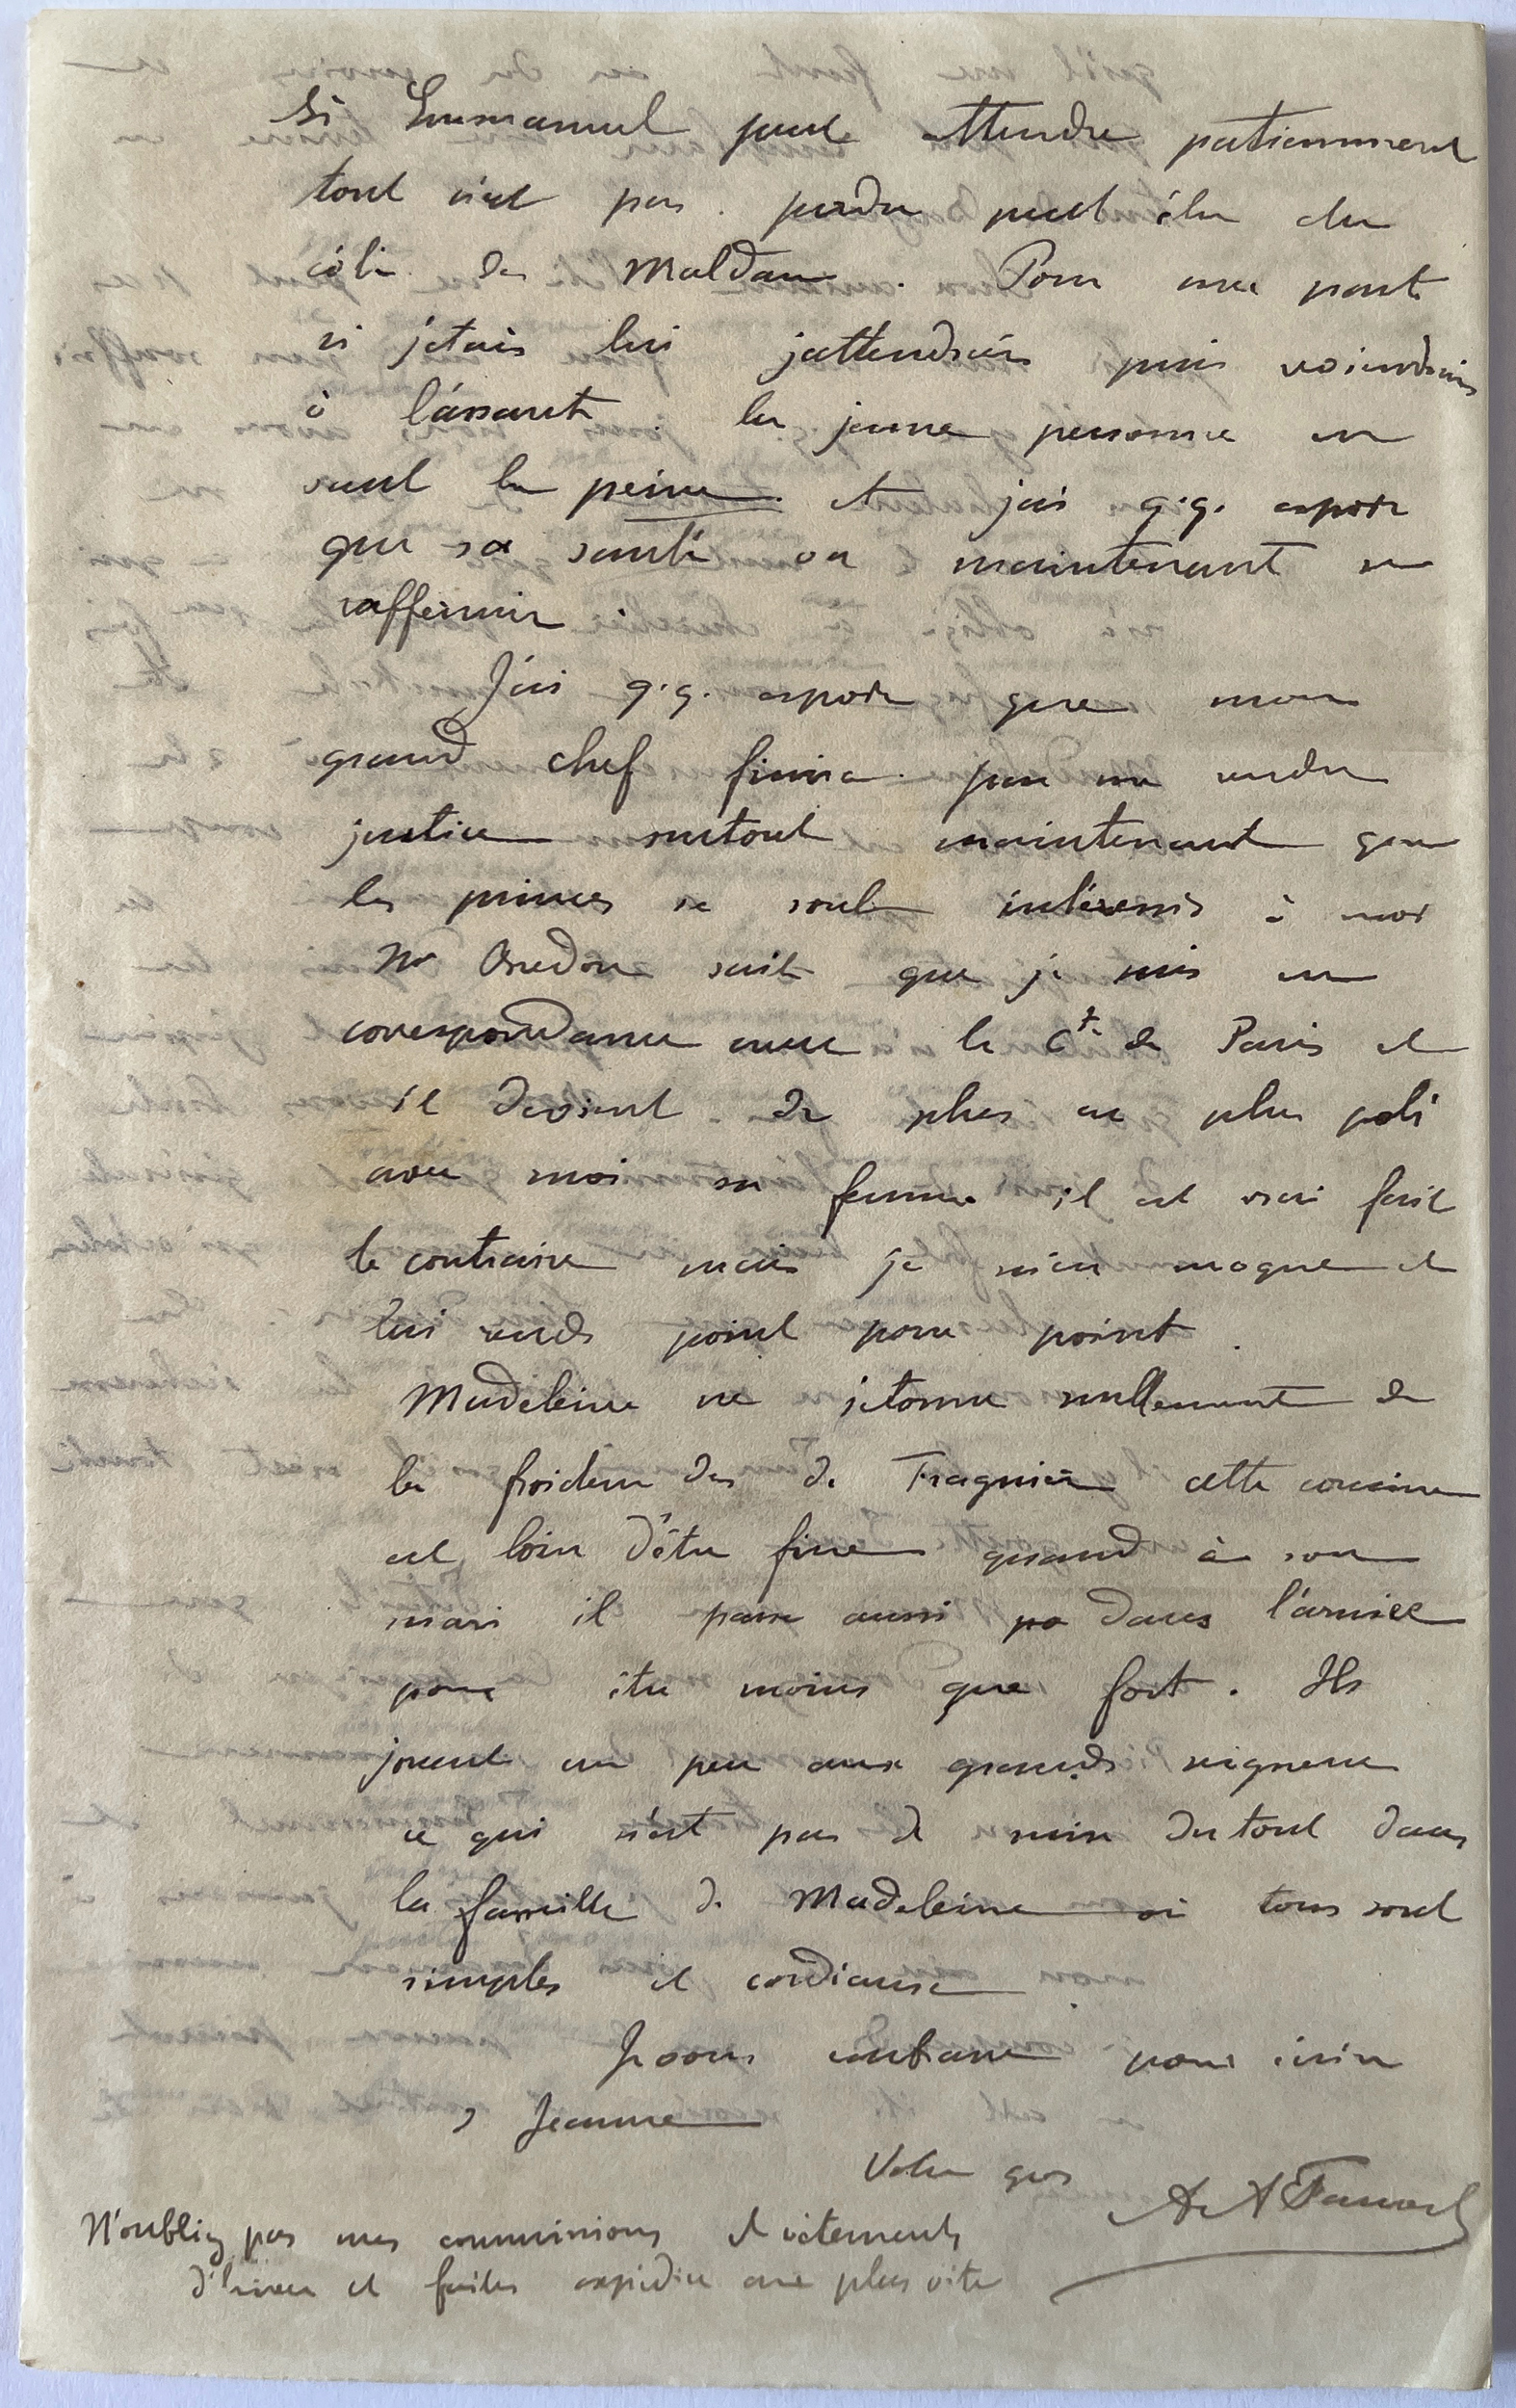 Si Emmanuel peut attendre patiemment
tout n'est pas perdu peut être du
côté des Maldan. Pour ma part
si j'étais lui j'attendrais puis reviendrais
à l'assaut. la jeune personne en
vaut la peine et j'ai q.q. espoir
que sa santé va maintenant se
raffermir.
J'ai q.q. espoir que mon
grand chef finira par me rendre
justice surtout maintenant que
les princes se sont intéressés à moi
Mr sait que je suis en
correspondance avec le Cte de Paris et
il devient de plus en plus poli
avec moi sa femme il est vrai fait
le contraire mais je m'en moque et
lui rends point pour point.
Madeleine ne s'étonne nullement de
la froideur des de Fragnier cette cousine
est loin d'être fine quand à son
mari il passe aussi pa dans l'armée
pour être moins que fort. Ils
jouent un peu aux grands seigneurs
ce qui n'est pas de mise du tout dans
la famille de Madeleine où tous sont
simples et cordiaux
Je vous embrasse
Jeanne
Votre gros A
N'oubliez pas mes commissions et vêtements
d'hiver et faites expédier au plus vite